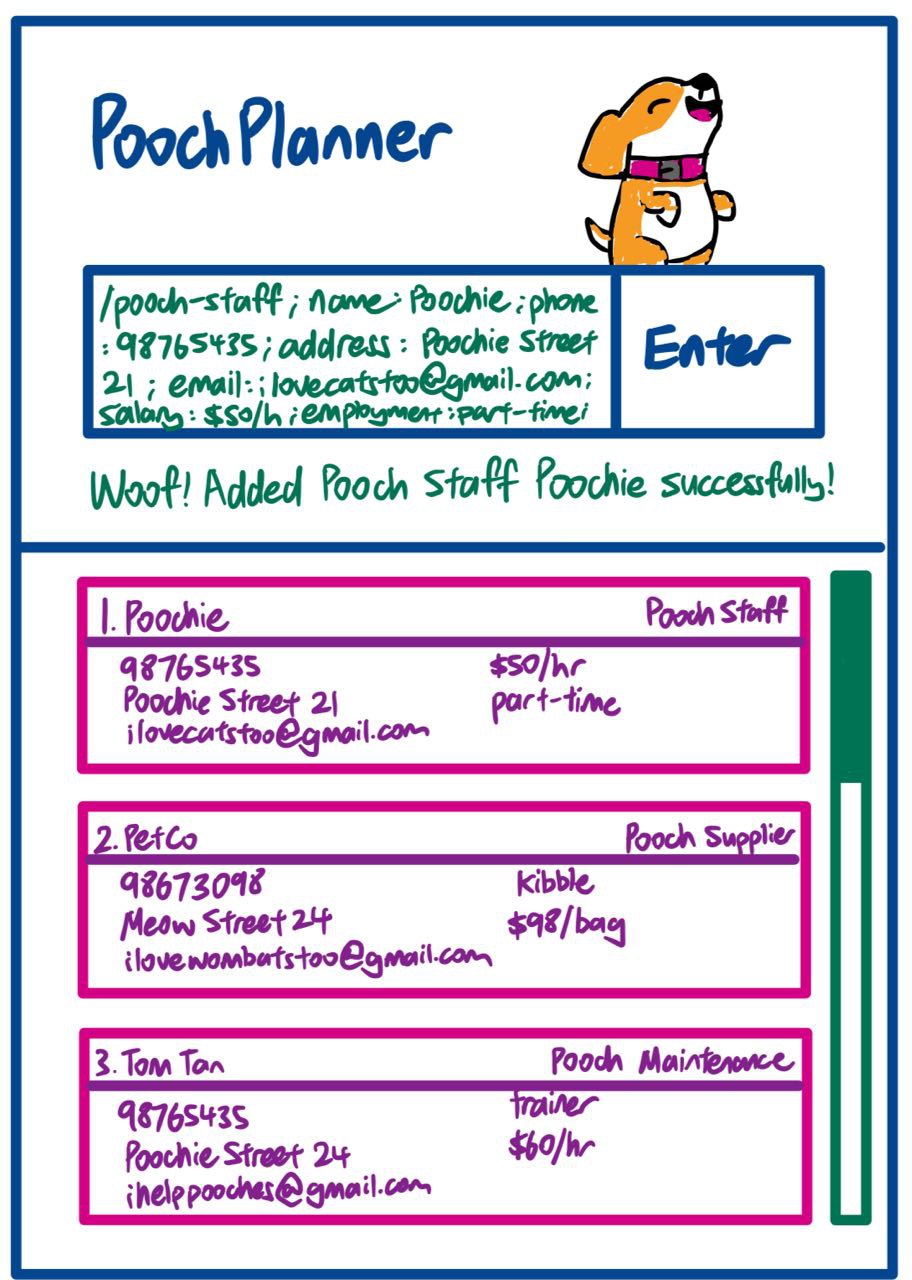 PoochPlanner
/pooch-staff ; name : Poochie ; phone
: 98765435 ; address : Poochie Street
21 ; email : ilovecatstoo@gmail.com ;
salary : $50/h ; employment : part-time ;
Enter
Woof! Added Pooch Staff Poochie successfully!
1. Poochie
Pooch Staff
98765435
Poochie Street 21
ilovecatstoo@gmail.com
$50/hr
part-time
2. PetCo
Pooch Supplier
98673098
Meow Street 24
ilovewombatstoo@gmail.com
Kibble
$98/bag
3. Tom Tan
Pooch Maintenance
98765435
Poochie Street 24
ihelppooches@gmail.com
trainer
$60/hr